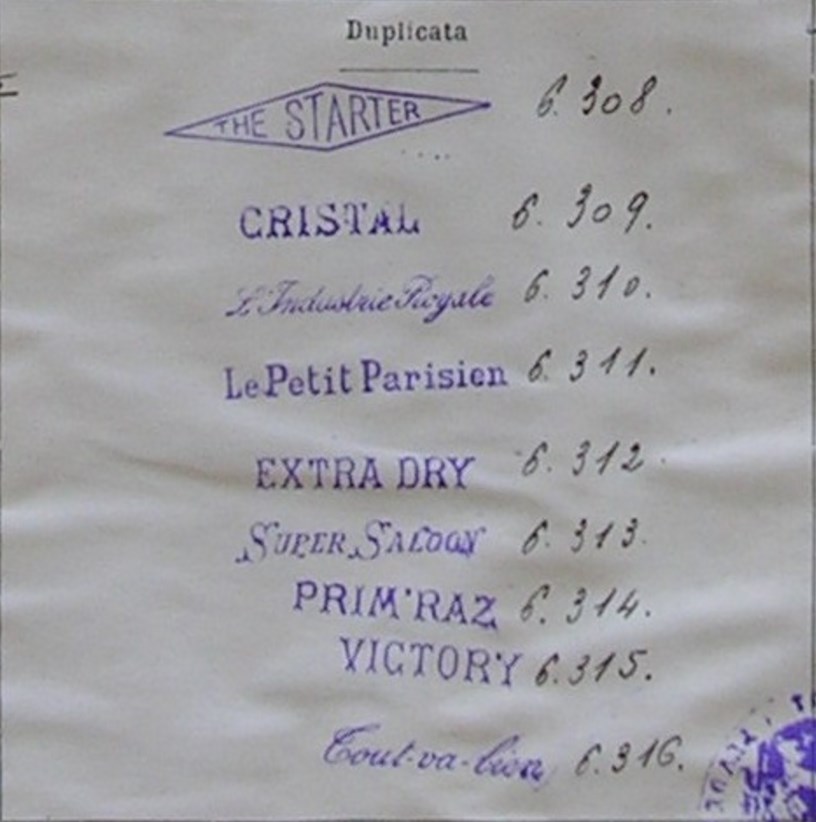 Duplicata
THE STARTER 6.308.
CRISTAL 6.309.
L'Industrie Royale 6.310.
Le Petit Parisien 6.311.
EXTRA DRY 6.312.
SUPER SALOON 6.313.
PRIM'RAZ 6.314.
VICTORY 6.315.
Tout-va-bien 6.316.